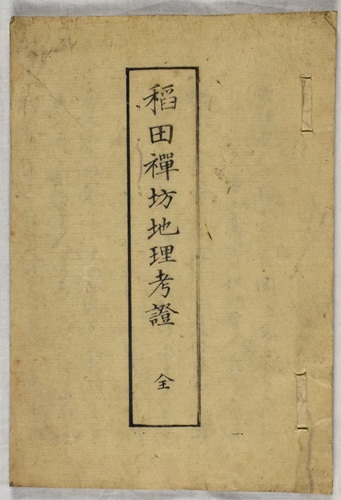 稻田禪坊地理考證 全